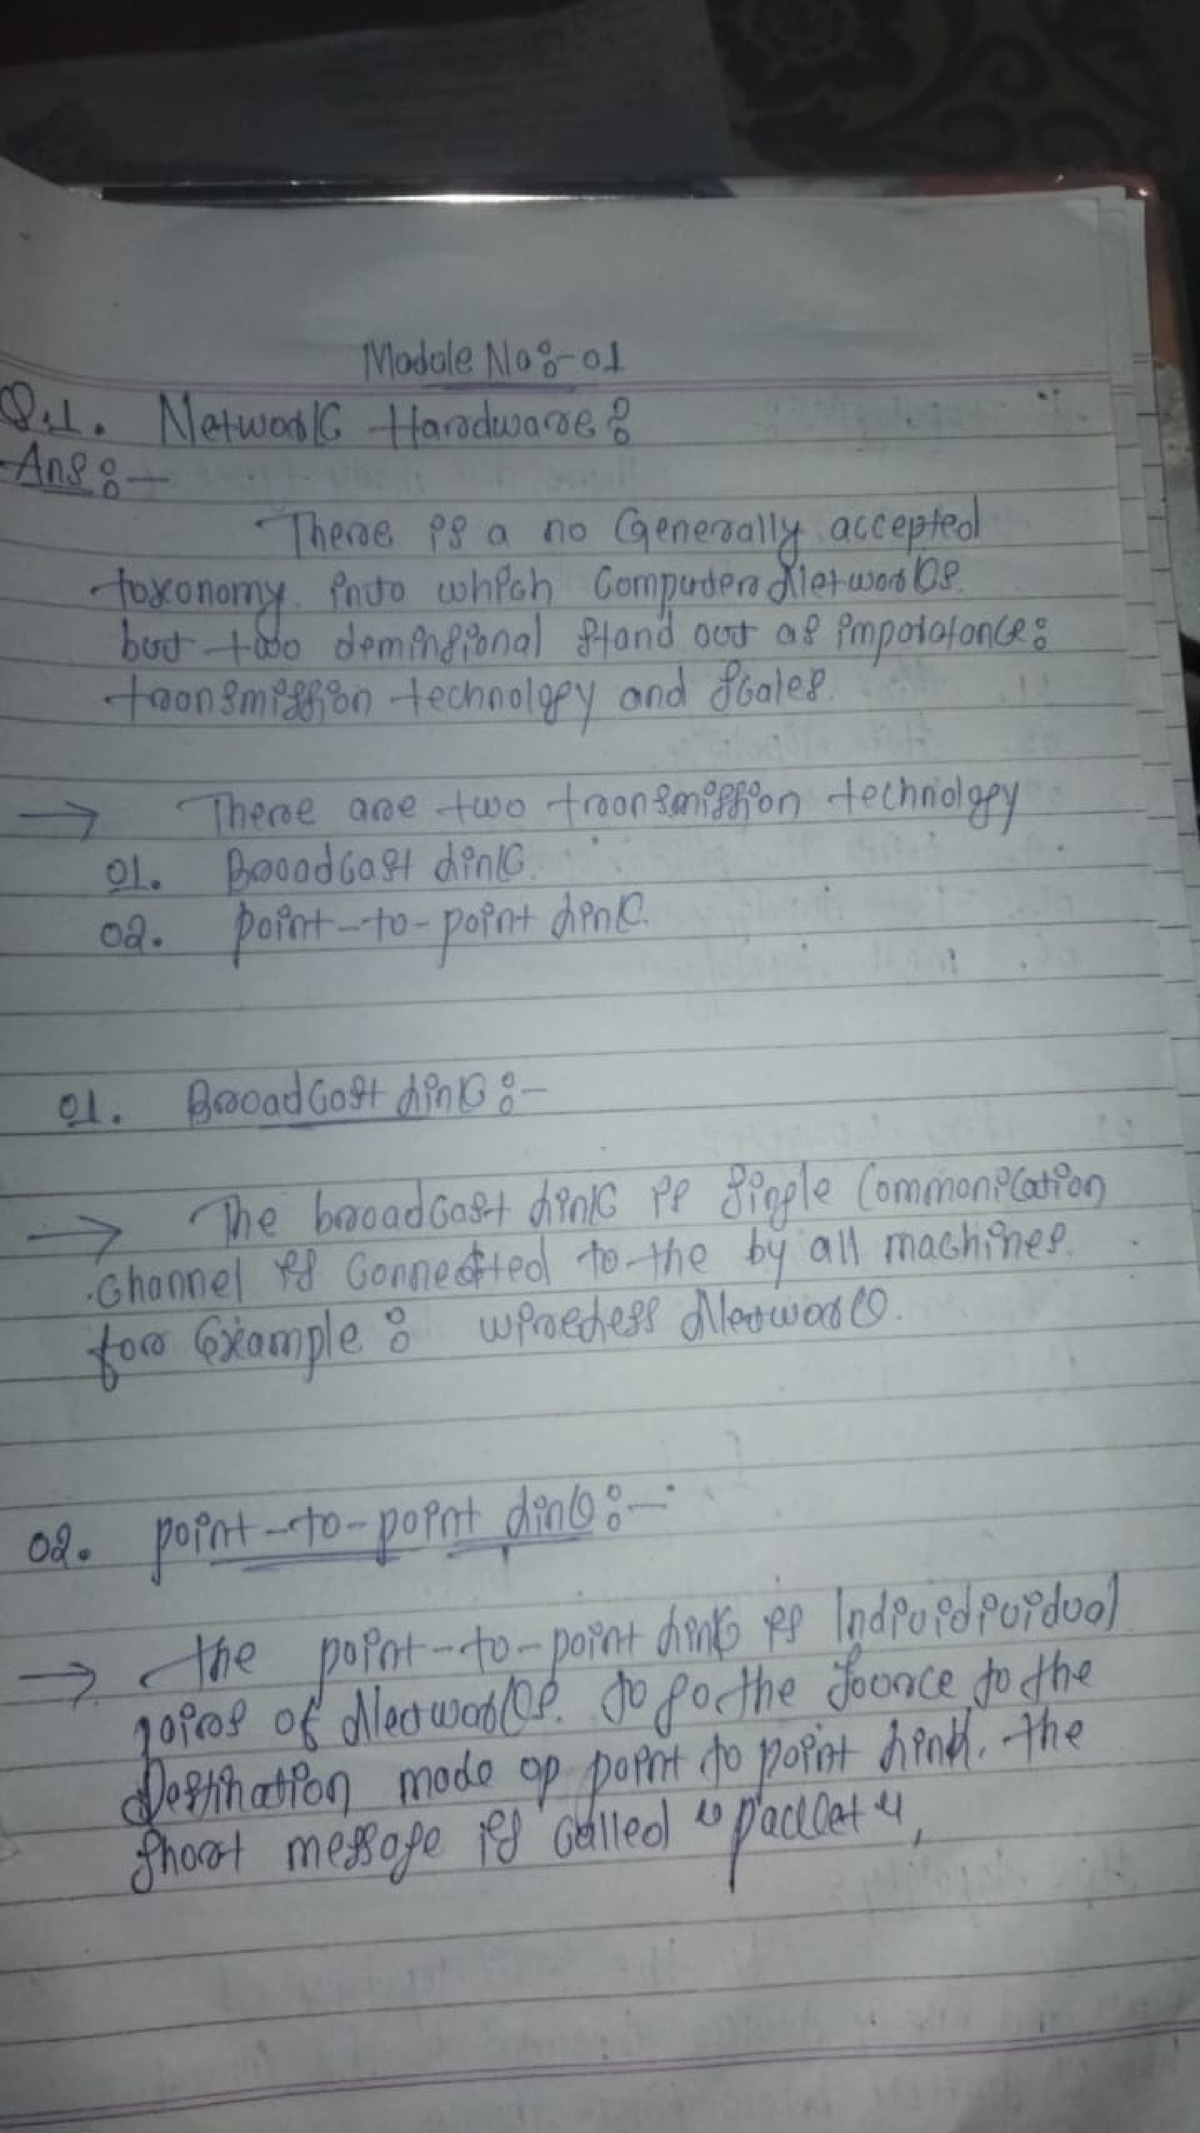 Module No:-01
Q.1. Network Hardware:
Ans:-
There is a no Generally accepted
toxonomy. into which Computer Networks.
but two deminsional stand out as imporatance:
transmission technology and Scales.
→ There are two transmission technology
01. Broadcast Link.
02. point-to-point Link.
01. Broadcast Link:-
→ The broadcast Link is Single Commonication
channel is Connected to the by all machines.
for Example: wireless Network.
02. point-to-point Link:-
→ the point-to-point Link is Individividual
pairs of Networks. to go the Source to the
Destination made op point to point Link. the
short message is called "packet",